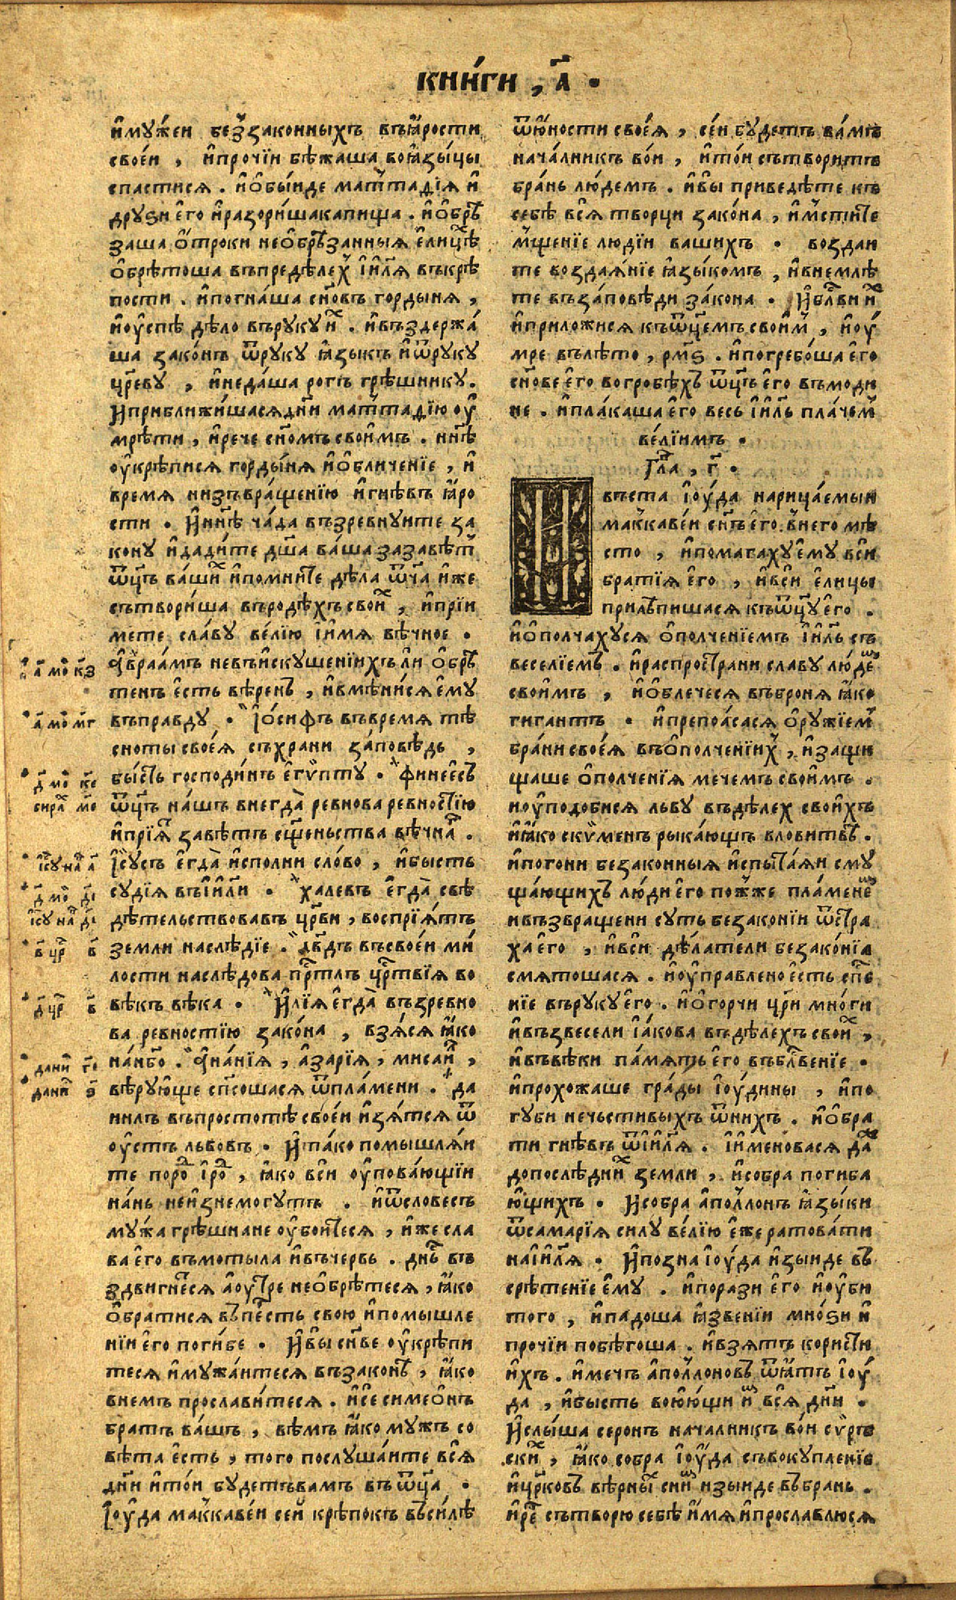 кни́ги , а҃ .
и҆му́жеи беᲁзако́нныхъ въꙗ҆́рости
свое́и , и҆про́чїи бѣжа́ша воꙗ҆зы́цы
спасти́сꙗ . и҆ѻ҆бы́иде матъта́дїꙗ и҆
дру́ѕи е҆го̀ и҆разори́шакапища . и҆ѻ҆брѣ́
заша ѻ҆́троки неѻ҆брѣ́занныꙗ е҆ли́цѣ
ѻ҆брѣто́ша въпредѣ́лех і҆и҃лꙗ въкрѣ́
пости . и҆погна́ша сн҃о́въ горды́нꙗ ,
и҆ѹ҆спѣ̀ дѣ́ло въру́ку и҆х . и҆въздержа́
ша зако́нъ ѿру́ку ꙗ҆зы́къ и҆ѿру́ку
цр҃еву , и҆неда́ша ро́гъ грѣ́шнику .
И҆прибли́жи́шасꙗдн҃и матъта́дїю ѹ҆
мрѣ́ти , и҆рече сн҃о́мъ свои҆́мъ . нн҃ѣ
ѹ҆крѣпи́сꙗ горды́нꙗ и҆ѻ҆бличе́нїе , и҆
вре́мꙗ низъвраще́нїю и҆гнѣ́въ ꙗ҆́ро
сти . И҆нн҃ѣ ча́да възревну́ите за
ко́ну и҆дади́те дш҃а ва́ша зазавѣ́т
ѿц҃ъ ва́ших и҆помни́те дѣ́ла ѿч҃а и҆́же
сътвори́ша въродѣ́хъ свои́х , и҆прїи
мете сла́ву ве́лїю і҆и҆́мꙗ вѣ́чное .
А҆враа́мъ невъи҆скуше́нїихъ ли ѻ҆брѣ́
тенъ е҆́сть вѣ́ренъ , и҆вмѣни́сꙗ е҆му
въпра́вду . І҆ѻ́сифъ въвре́мꙗ тѣ
сноты̀ своеꙗ̀ съхранѝ за́повѣдь ,
бы́сть господи́нъ е҆гѵ́пту . финее́съ
ѿц҃ъ на́шъ внегда̀ ревнова̀ ре́вностїю
и҆прїꙗ́т завѣ́тъ сщ҃еньства вѣ́чнаг .
І҆су́съ е҆гда̀ и҆спо́лни сло́во , и҆бы́сть
суди́ꙗ въі҆и҃ли . хале́въ е҆гда̀ свѣ
дѣ́тельствовавъ цр҃кви , воспрїꙗ́тъ
землѝ наслѣ́дїе . дв҃дъ въсвое́и ми́
лости наслѣ́дова прⷭ҇тлъ црⷭ҇твїꙗ во
вѣ́къ вѣ́ка . И҆лїꙗ̀ е҆гда̀ възревно
ва̀ ре́вностїю зако́на , взꙗ́сꙗ ꙗ҆́ко
нане́бо . А҆на́нїꙗ , а҆за́рїꙗ , мисаи́л ,
вѣ́рую҆ще сп҃со́шасꙗ ѿпла́мени . да
нии́лъ въпростотѣ̀ свое́и и҆зꙗ́тсꙗ ѿ
ѹ҆́стъ льво́въ . И҆та́ко помышлꙗ́и
те порѻ́д і҆рѻ́д , ꙗ҆́ко всѝ ѹ҆пова́ющїи
нань неи҆знемо́гутъ . и҆ѿслове́съ
му́жа грѣ́шнане ѹ҆бо́итесꙗ , и҆́же сла
ва е҆го̀ въмоты́ла и҆въче́рвь . дне́сь въ
здви́гнетсꙗ а҆ѹ҆́тре неѻ҆брѣ́тесꙗ , ꙗ҆́ко
ѻ҆брати́сꙗ впе́рсть свою̀ и҆помышле
нїи е҆го̀ поги́бе . И҆вы̀ сн҃ве ѹ҆крѣпи́
тесꙗ и҆мужа́итесꙗ въ зако́нѣ , ꙗ҆́ко
внемъ просла́витесꙗ . и҆се симеѻ́нъ
бра́тъ ва́шъ , вѣ́мъ ꙗ҆́ко му́жъ со
вѣ́та е҆́сть , того̀ послу́шаите всꙗ̀
дн҃и и҆то́и бу́детъвамъ въ ѿц҃а .
І҆ѹ́да маккаве́и сеи крѣ́покъ въси́лѣ
а҃ мо кз
а҃ мо мг
д҃ мо ке
сира́х мо
і҆су на а҃
д҃ мо ді
і҆су на ді
в҃ цр҃ в҃
д҃ цр҃ в҃
дани́ г҃
дани́ ѕ҃
ѿю҆́ности своеꙗ̀ , се́и бу́детъ ва́мъ
нача́лникъ во́и , и҆то́и сътвори́тъ
бра́нь лю́демъ . и҆вы̀ приведѣ́те къ
себѣ̀ всꙗ̀ творцѝ зако́на , и҆мсти́те
мще́нїе люді́и ва́шихъ . возда́и
те воздаꙗ́нїе ꙗ҆зы́комъ , и҆внемлѣ́
те въза́повѣди зако́на . И҆блⷭ҇ви и҆х
и҆приложи́сꙗ къѿц҃емъ свои́м , и҆ѹ҆́
мре влѣ́то , рм҃ѕ . и҆погребо́ша е҆го
сн҃ове е҆го̀ во гробѣ́хъ ѿц҃ъ е҆го въмоди
не . и҆пла́каша е҆го весь і҆и҃ль пла́чем
ве́лїимъ .
Гла , г҃ .
въста І҆ѹ́да нарица́емыи
маккаве́и сн҃ъ е҆го̀ . внего мѣ́
сто , и҆помага́ху е҆му̀ всѝ
бра́тїꙗ е҆го , и҆всѝ е҆ли́цы
прилѣ́пишасꙗ къѿц҃у е҆го .
и҆ѻ҆полча́хусꙗ ѻ҆полче́нїемъ і҆и҃ль съ
весе́лїемъ . и҆распростра́ни сла́ву лю́дем
свои҆́мъ , и҆ѻ҆блече́сꙗ въбронꙗ ꙗ҆́ко
гига́нтъ . и҆препоꙗ́сасꙗ ѻ҆ру́жїем
бра́ни своеꙗ̀ въѻ҆полче́нїих , и҆защи
щаше ѻ҆полче́нїꙗ мече́мъ свои́мъ .
и҆ѹ҆подо́бисꙗ льву въдѣ́лех свои́хъ
и҆ꙗ҆́ко скѵ́менъ рыка́ющъ вловитвѣ .
и҆погони беззако́нныꙗ и҆спыта́ꙗи сму
ща́ющихъ лю́ди е҆го̀ пожже пла́менем
и҆възвраще́ни суть беззако́нїи ѿстра
ха е҆го̀ , и҆всѝ дѣ́латели беззако́нїꙗ
смꙗто́шасꙗ . и҆ѹ҆пра́влено е҆́сть сп҃се
нїе въру́ку е҆го . и҆ѻ҆горчи цр҃и мно́ги
и҆възвесели і҆а́кова въдѣ́лехъ свои́х ,
и҆въвѣ́ки па́мꙗть е҆го̀ въблⷭ҇ве́нїе .
и҆прохожа́ше гра́ды І҆ѹ́дины , и҆по
губи нечести́выхъ ѿнихъ . и҆ѻ҆бра
ти гнѣ́въ ѿі҆и҃лꙗ . і҆и҆менова́сꙗ да́ж
допослѣ́дних землѝ , и҆собра̀ погиба
ю҆щихъ . И҆собра̀ а҆поллонъ ꙗ҆зы́ки
ѿсамарі́ꙗ си́лу ве́лїю е҆́же ратова́ти
наі҆и҃лꙗ . И҆позна̀ І҆ѹ́да и҆зы́иде въ
срѣ́тенїе е҆му . и҆поразѝ е҆го̀ и҆ѹ҆би
того , и҆падо́ша ꙗ҆́звенїи мно́ѕи и҆
про́чїи побѣго́ша . и҆взꙗ́тъ кори́сти
и҆́хъ . и҆ме́чъ а҆поллоновъ ѿꙗ҆́тъ І҆ѹ́
да , и҆бы́сть вою́ющи им всꙗ̀ дн҃и .
И҆слы́ша серонъ нача́лникъ во́и сѵ́рь
ских , ꙗ҆́ко собра̀ І҆ѹ́да съвокупле́нїе
и҆цр҃ковъ вѣ́рных сним и҆зы́иде въбра́нь .
и҆рече сътворю̀ себѣ̀ и҆́мꙗ и҆просла́влюсꙗ